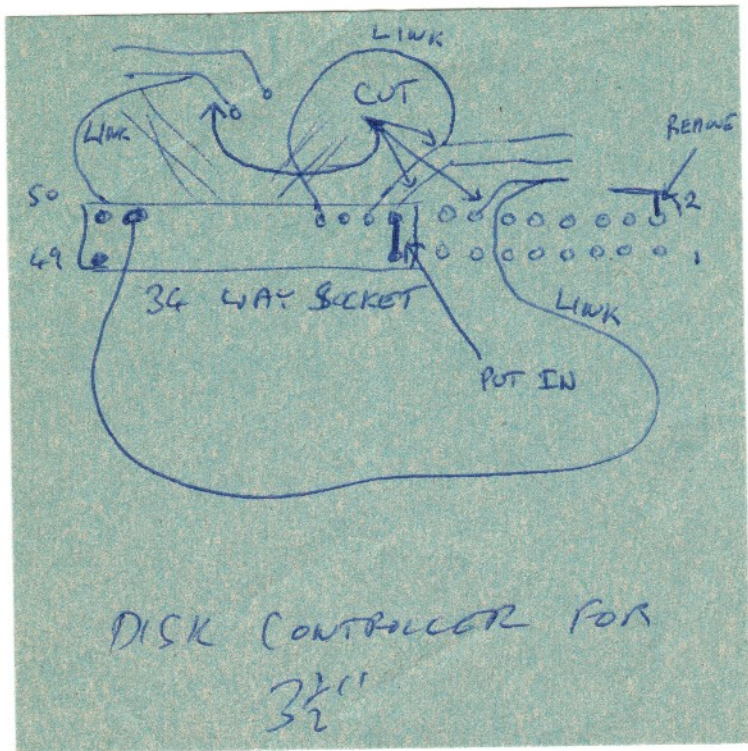 LINK
CUT
REMOVE
LINK
50
2
49
1
34 WAY SOCKET
LINK
PUT IN
DISK CONTROLLER FOR
3½"